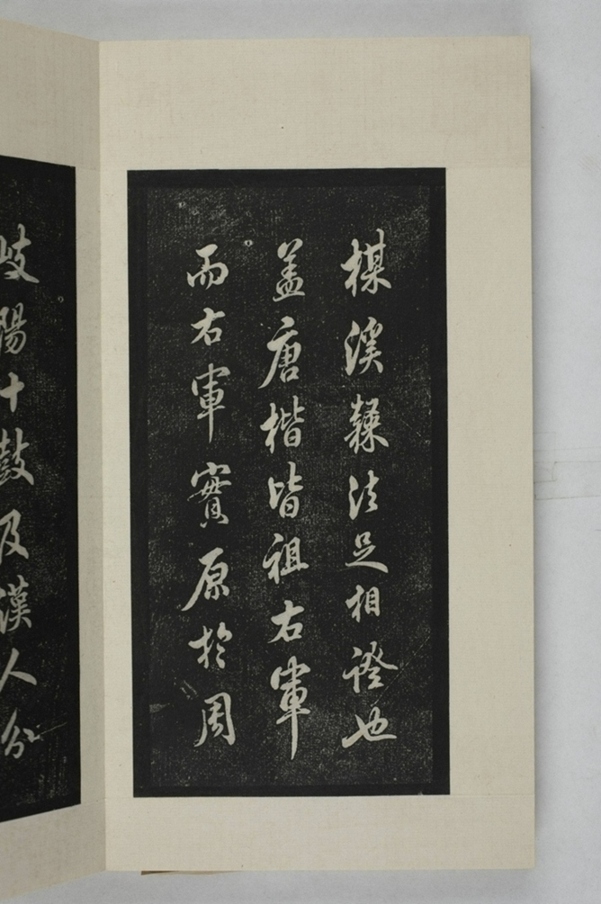 楳溪隸法足相證也
盖唐楷皆祖右軍
而右軍實原於周
岐陽十鼓及漢人分